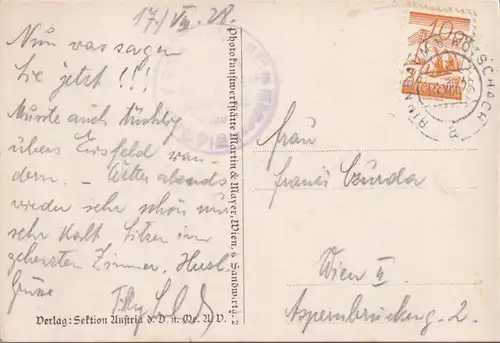 17./VIII. 28.
Nun was sagen
Sie jetzt!!!
Musste auch tüchtig
übers Eisfeld wan-
dern. – Wetter abends
wieder sehr schön nur
sehr kalt. Sitzen im
geheizten Zimmer. Herzl.
Grüsse
Verlag: Sektion Austria d. D. u. Oe. A. V.
Photokunstwerkstätte Martin & Mayer, Wien, 6 Sandwirtg. 2
10
KÖTSCHACH
Frau
Wien II
Aspernbrückeng. 2.